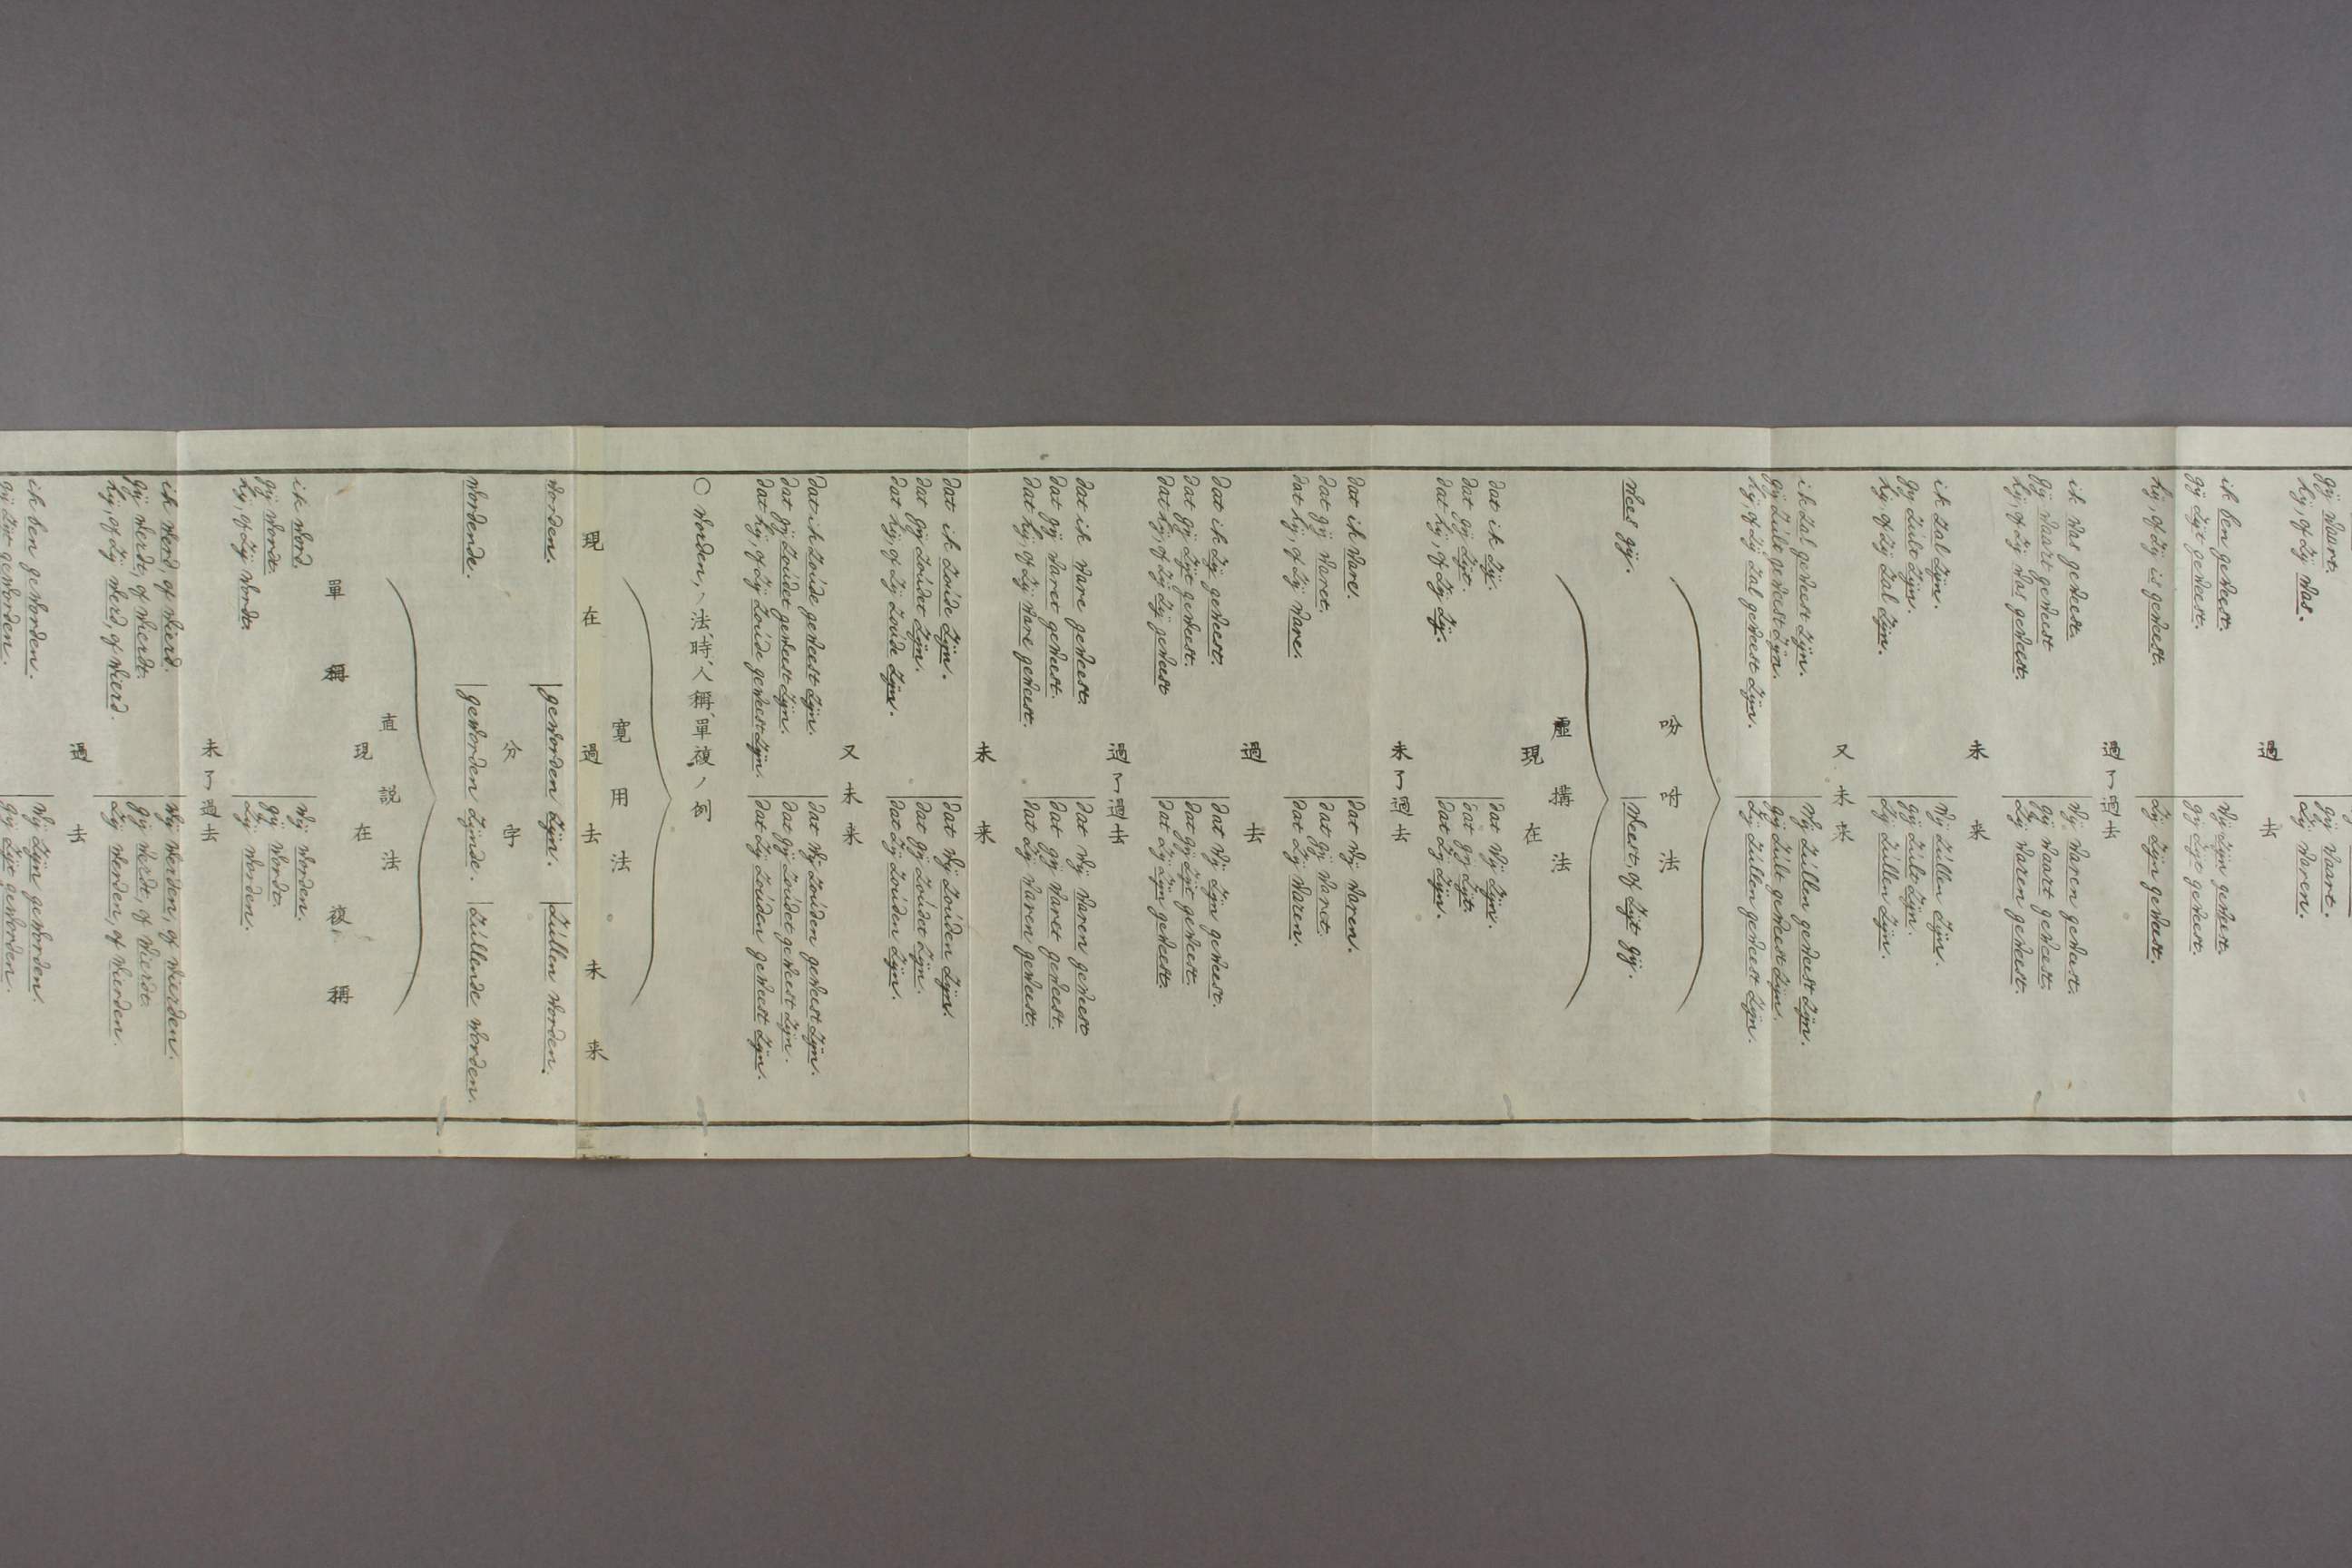 gij waart. | gij waart.
hij, of zij was. | zij waren.
過去
ik ben geweest. | wij zijn geweest.
gij zijt geweest. | gij zijt geweest.
hij, of zij is geweest. | zij zijn geweest.
過了過去
ik was geweest. | wij waren geweest.
gij waart geweest | gij waart geweest.
hij, of zij was geweest. | zij waren geweest.
未来
ik zal zijn. | wij zúllen zijn.
gij zúlt zijn. | gij zúlt zijn.
hij, of zij zal zijn. | zij zúllen zijn.
又未来
ik zal geweest zijn. | wij zúllen geweest zijn.
gij zúlt geweest zijn. | gij zúlt geweest zijn.
hij, of zij zal geweest zijn. | zij zúllen geweest zijn.
吩咐法
wees gij. | weest of zijt gij.
虛搆法
現在
dat ik zij. | dat wij zijn.
dat gij zijt. | dat gij zijt.
dat hij, of zij zij. | dat zij zijn.
未了過去
dat ik ware. | dat wij waren.
dat gij waret. | dat gij waret.
dat hij, of zij ware. | dat zij waren.
過去
dat ik zij geweest. | dat wij zijn geweest.
dat gij zijt geweest. | dat gij zijt geweest.
dat hij, of zij zij geweest | dat zij zijn geweest.
過了過去
dat ik ware geweest. | dat wij waren geweest
dat gij waret geweest. | dat gij waret geweest.
dat hij, of zij ware geweest. | dat zij waren geweest.
未来
dat ik zoúde zijn. | dat wij zoúden zijn.
dat gij zoúdet zijn. | dat gij zoúdet zijn.
dat hij, of zij zoúde zijn. | dat zij zoúden zijn.
又未来
dat ik zoúde geweest zijn. | dat wij zoúden geweest zijn.
dat gij zoúdet geweest zijn. | dat gij zoúdet geweest zijn.
dat hij, of zij zoúde geweest zijn. | dat zij zoúden geweest zijn.
○ worden, ノ法、時、人稱、單複ノ例
寛用法
現在 過去 未来
worden. | geworden zijn. | zúllen worden.
分字
wordende. | geworden zijnde. | zúllende worden.
直説法
現在
單稱 複稱
ik word. | wij worden.
gij wordt. | gij wordt.
hij, of zij wordt. | zij worden.
未了過去
ik werd, of wierd. | wij werden, of wierden.
gij werdt, of wierdt. | gij werdt, of wierdt.
hij, of zij werd, of wierd. | zij werden, of wierden.
過去
ik ben geworden. | wij zijn geworden.
gij zijt geworden. | gij zijt geworden.